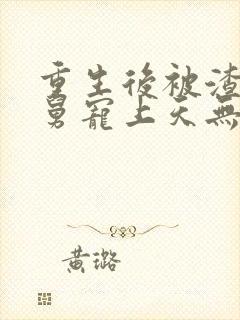 重生後被渣
舅寵上天無
黃璐